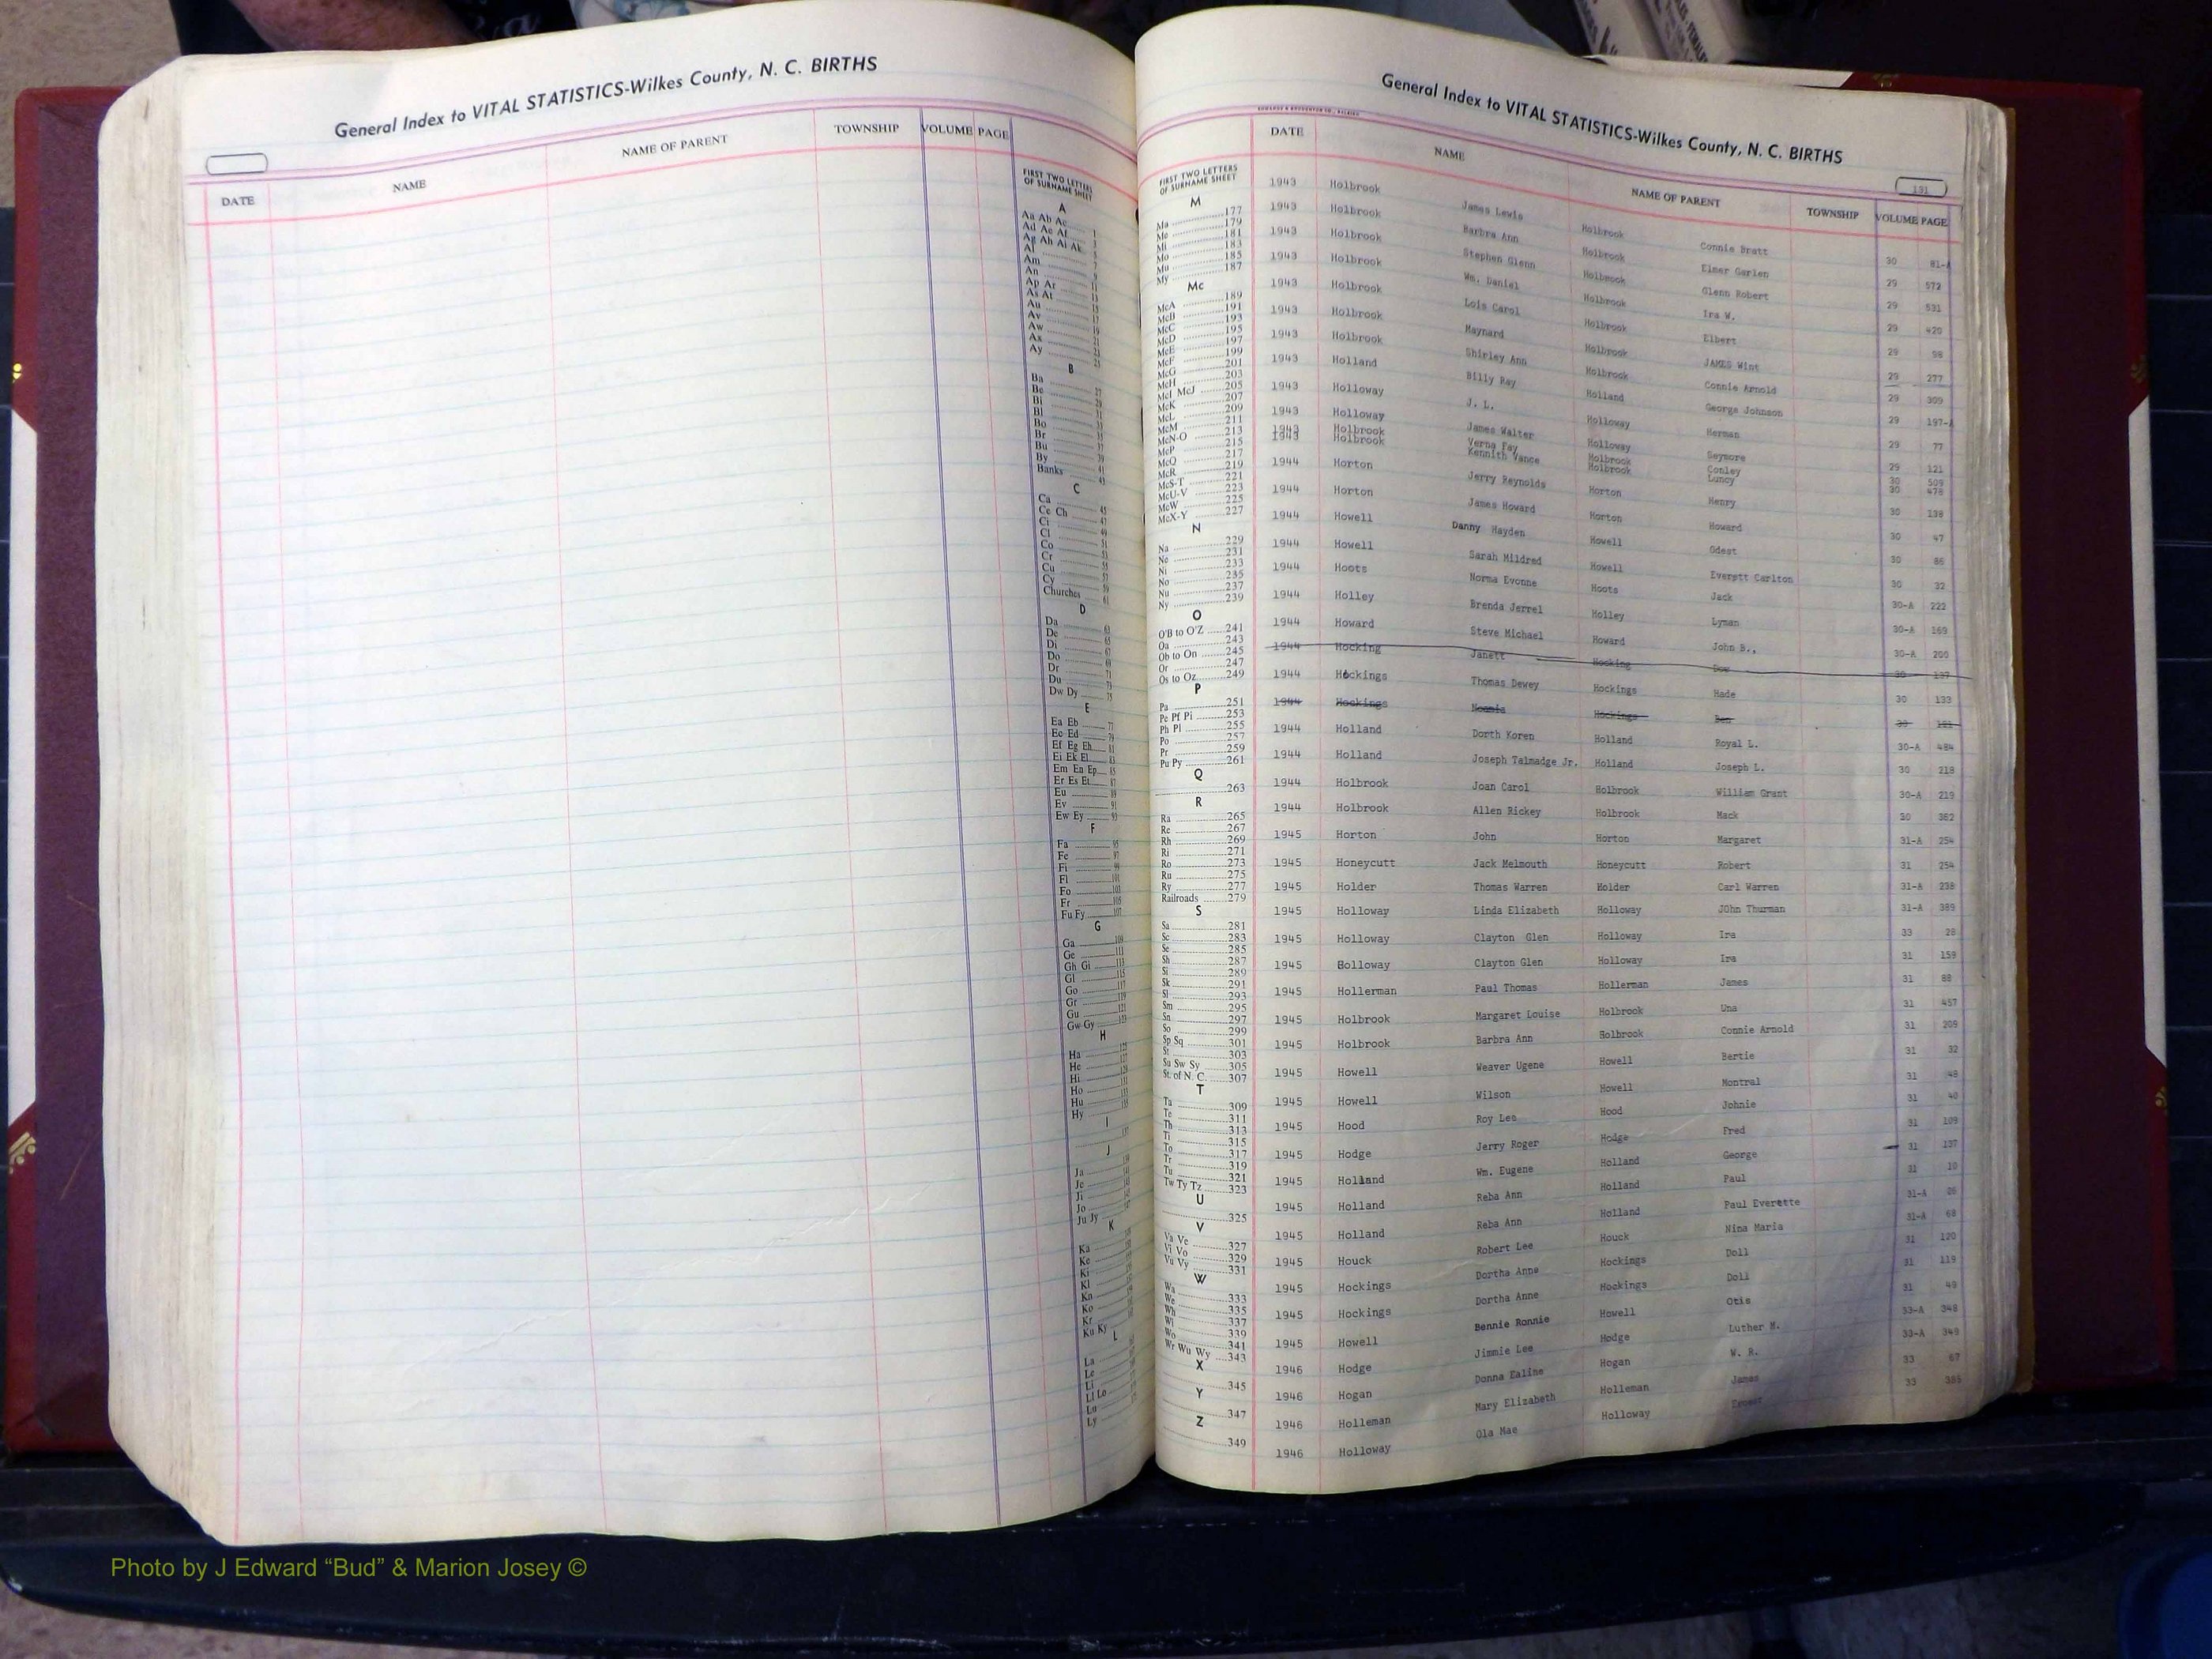 General Index to VITAL STATISTICS-Wilkes County, N. C. BIRTHS
DATE NAME NAME OF PARENT TOWNSHIP VOLUME PAGE
FIRST TWO LETTERS
OF SURNAME SHEET
A
Aa Ab Ac 1
Ad Ae Af 3
Ag Ah Ai Ak 5
Al 7
Am 9
An 11
Ap Ar 13
As At 15
Au 17
Av 19
Aw 21
Ax 23
Ay 25
B
Ba 27
Be 29
Bi 31
Bl 33
Bo 35
Br 37
Bu 39
By 41
Banks 43
C
Ca 45
Ce Ch 47
Ci 49
Cl 51
Co 53
Cr 55
Cu 57
Cy 59
Churches 61
D
Da 63
De 65
Di 67
Do 69
Dr 71
Du 73
Dw Dy 75
E
Ea Eb 77
Ec Ed 79
Ef Eg Eh 81
Ei Ek El 83
Em En Ep 85
Er Es Et 87
Eu 89
Ev 91
Ew Ey 93
F
Fa 95
Fe 97
Fi 99
Fl 101
Fo 103
Fr 105
Fu Fy 107
G
Ga 109
Ge 111
Gh Gi 113
Gl 115
Go 117
Gr 119
Gu 121
Gw Gy 123
H
Ha 125
He 127
Hi 129
Ho 131
Hu 133
Hy 135
I
137
J
Ja
Je
Ji
Jo
Ju Jy
K
Ka
Ke
Ki
Kl
Kn
Ko
Kr
Ku Ky
L
La
Le
Li
Ll Lo
Lu
Ly
General Index to VITAL STATISTICS-Wilkes County, N. C. BIRTHS
131
DATE NAME NAME OF PARENT TOWNSHIP VOLUME PAGE
FIRST TWO LETTERS
OF SURNAME SHEET
M
Ma 177
Me 179
Mi 181
Mo 183
Mu 185
My 187
Mc
McA 189
McB 191
McC 193
McD 195
McE 197
McF 199
McG 201
McH 203
McI McJ 205
McK 207
McL 209
McM 211
McN-O 213
McP 215
McQ 217
McR 219
McS-T 221
McU-V 223
McW 225
McX-Y 227
N
Na 229
Ne 231
Ni 233
No 235
Nu 237
Ny 239
O
O'B to O'Z 241
Oa 243
Ob to On 245
Or 247
Os to Oz 249
P
Pa 251
Pe Pf Pi 253
Ph Pl 255
Po 257
Pr 259
Pu Py 261
Q
263
R
Ra 265
Re 267
Rh 269
Ri 271
Ro 273
Ru 275
Ry 277
Railroads 279
S
Sa 281
Sc 283
Se 285
Sh 287
Si 289
Sk 291
Sl 293
Sm 295
Sn 297
So 299
Sp Sq 301
St 303
Su Sw Sy 305
St. of N. C. 307
T
Ta 309
Te 311
Th 313
Ti 315
To 317
Tr 319
Tu 321
Tw Ty Tz 323
U
325
V
Va Ve 327
Vi Vo 329
Vu Vy 331
W
Wa 333
We 335
Wh 337
Wi 339
Wo 341
Wr Wu Wy 343
X
345
Y
347
Z
349
1943 Holbrook James Lewis Holbrook Connie Bratt 30 81-A
1943 Holbrook Barbra Ann Holbrook Elmer Garlen 29 572
1943 Holbrook Stephen Glenn Holbrook Glenn Robert 29 531
1943 Holbrook Wm. Daniel Holbrook Ira W. 29 420
1943 Holbrook Lois Carol Holbrook Elbert 29 98
1943 Holbrook Maynard Holbrook JAMES Wint 29 277
1943 Holbrook Shirley Ann Holbrook Connie Arnold 29 309
1943 Holland Billy Ray Holland George Johnson 29 197-A
1943 Holloway J. L. Holloway Herman 29 77
1943 Holloway James Walter Holloway Seymore 29 121
1943 Holbrook Verna Fay Holbrook Conley 30 509
1943 Holbrook Kennith Vance Holbrook Luncy 30 478
1944 Horton Jerry Reynolds Horton Henry 30 138
1944 Horton James Howard Horton Howard 30 47
1944 Howell Danny Hayden Howell Odest 30 86
1944 Howell Sarah Mildred Howell Everett Carlton 30 32
1944 Hoots Norma Evonne Hoots Jack 30-A 222
1944 Holley Brenda Jerrel Holley Lyman 30-A 169
1944 Howard Steve Michael Howard John B., 30-A 200
1944 Hocking Janett Hocking Dow 30 137
1944 Hockings Thomas Dewey Hockings Hade 30 133
1944 Hockings Hockings Ben 30
1944 Holland Dorth Koren Holland Royal L. 30-A 484
1944 Holland Joseph Talmadge Jr. Holland Joseph L. 30 218
1944 Holbrook Joan Carol Holbrook William Grant 30-A 219
1944 Holbrook Allen Rickey Holbrook Mack 30 362
1945 Horton John Horton Margaret 31-A 254
1945 Honeycutt Jack Melmouth Honeycutt Robert 31 254
1945 Holder Thomas Warren Holder Carl Warren 31-A 238
1945 Holloway Linda Elizabeth Holloway JOhn Thurman 31-A 389
1945 Holloway Clayton Glen Holloway Ira 33 28
1945 Holloway Clayton Glen Holloway Ira 31 159
1945 Hollerman Paul Thomas Hollerman James 31 88
1945 Holbrook Margaret Louise Holbrook Una 31 457
1945 Holbrook Barbra Ann Holbrook Connie Arnold 31 209
1945 Howell Weaver Ugene Howell Bertie 31 32
1945 Howell Wilson Howell Montral 31 48
1945 Hood Roy Lee Hood Johnie 31 40
1945 Hodge Jerry Roger Hodge Fred 31 109
1945 Holland Wm. Eugene Holland George 31 137
1945 Holland Reba Ann Holland Paul 31 10
1945 Holland Reba Ann Holland Paul Everette 31-A
1945 Houck Robert Lee Houck Nina Maria 31-A 68
1945 Hockings Dortha Anne Hockings Doll 31 120
1945 Hockings Dortha Anne Hockings Doll 31 119
1945 Howell Bennie Ronnie Howell Otis 31 49
1946 Hodge Jimmie Lee Hodge Luther M. 33-A 348
1946 Hogan Donna Ealine Hogan W. R. 33-A 349
1946 Holleman Mary Elizabeth Holleman James 33 67
1946 Holloway Ola Mae Holloway Ernest 33 385
Photo by J Edward “Bud” & Marion Josey ©